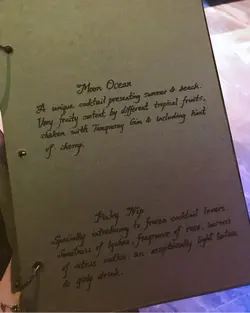 Moon Ocean
A unique cocktail presenting summer & beach.
Very fruity content by different tropical fruits,
shaken with Tanqueray Gin & including hint
of cherry.
Pinky Nip
Specially introducing to frozen cocktail lovers.
Sweetness of lychee, fragrance of rose,
of citrus vodka, an exceptionally light texture
& gulp drink.